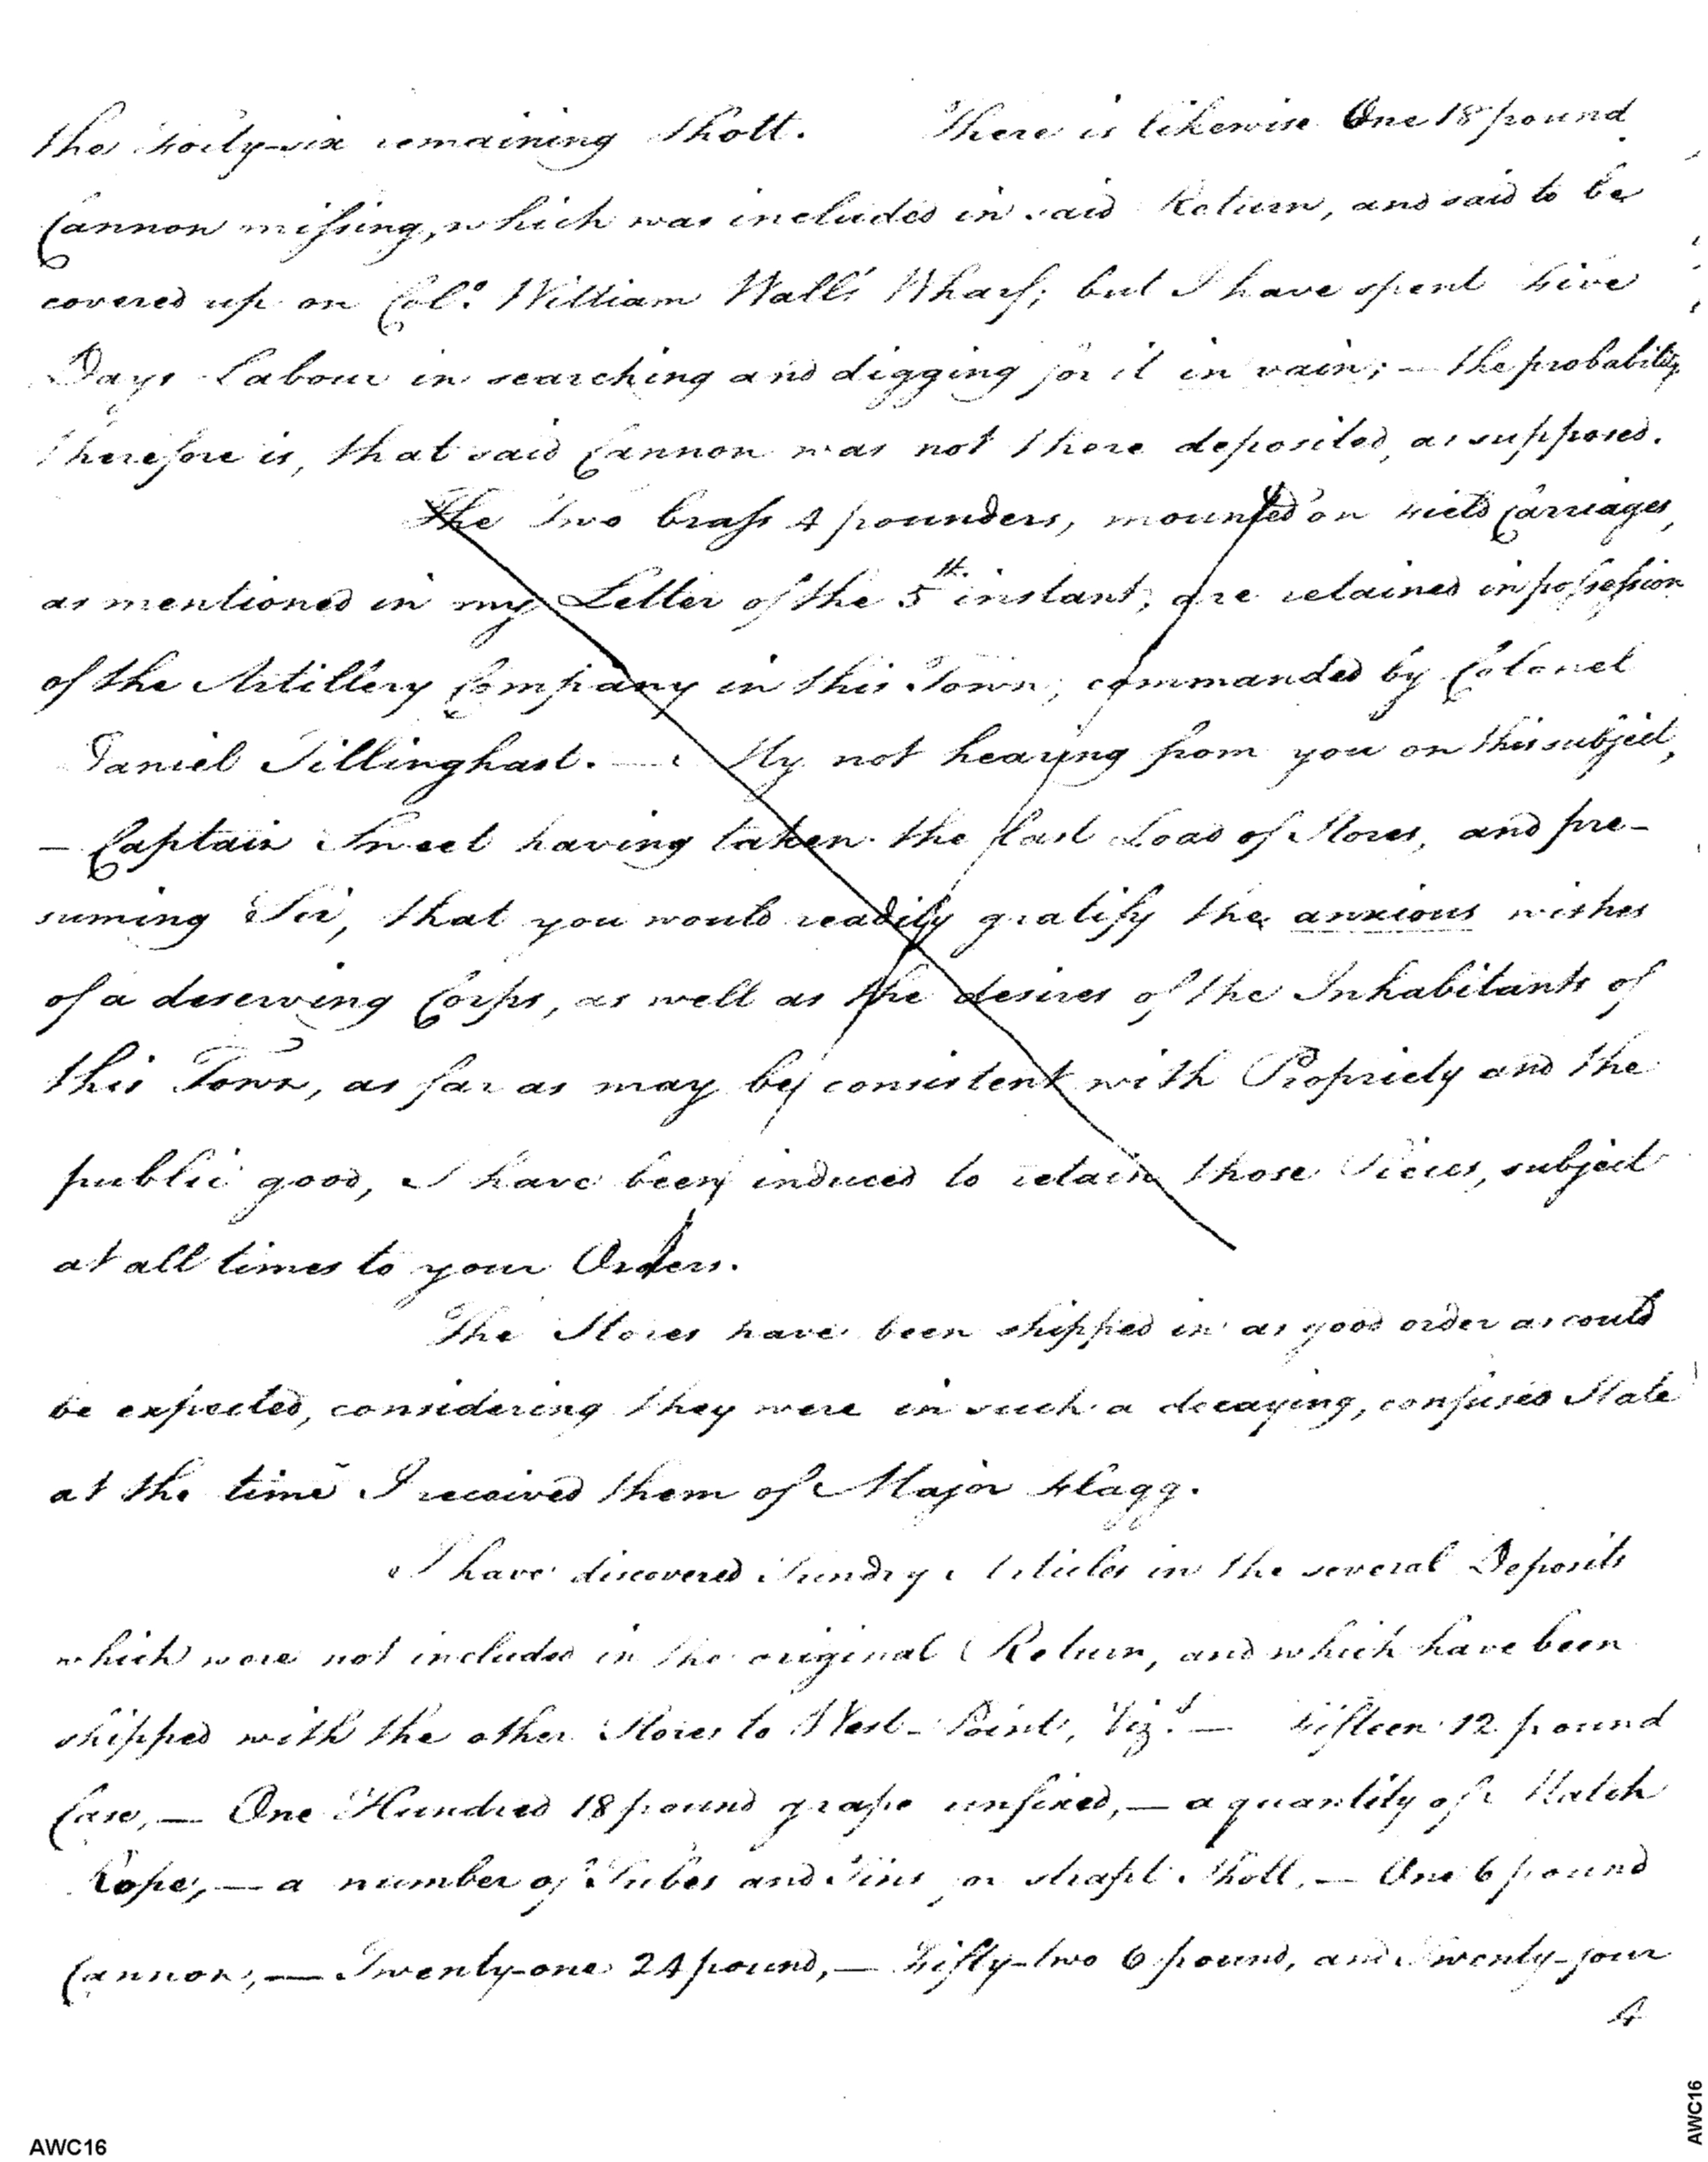 the Forty-six remaining Shott. There is likewise One 18 pound
Cannon missing, which was included in said Return, and said to be
covered up on Col.º William Wall's Wharf; but I have spent Five
Days Labour in searching and digging for it in vain; — the probability
therefore is, that said Cannon was not there deposited, as supposed.
The Two brass 4 pounders, mounted on Field Carriages,
as mentioned in my Letter of the 5th. instant, are retained in possession
of the Artillery Company in this Town, commanded by Colonel
Daniel Tillinghast. — My not hearing from you on this subject,
— Captain Sneel having taken the last Load of Stores, and pre-
suming Sir, that you would readily gratify the anxious wishes
of a deserving Corps, as well as the desires of the Inhabitants of
this Town, as far as may be consistent with Propriety and the
public good, I have been induced to retain those Pieces, subject
at all times to your Orders.
The Stores have been shipped in as good order as could
be expected, considering they were in such a decaying, confused State
at the time I received them of Major Flagg.
I have discovered Sundry Articles in the several Deposits
which were not included in the original Return, and which have been
shipped with the other Stores to West-Point, Viz.t — Fifteen 12 pound
Case, — One Hundred 18 pound grape unfixed, — a quantity of Match
Rope, — a number of Tubes and Tins for strapt Shott, — One 6 pound
Cannon, — Twenty-one 24 pound, — Fifty-two 6 pound, and Twenty-four
4
AWC16
AWC16